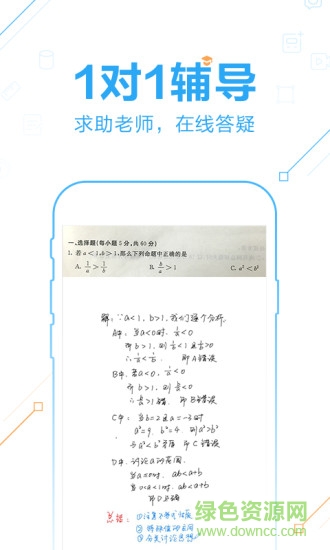 1对1辅导
求助老师，在线答疑
一、选择题(每小题5分,共60分)
1. 若a<1,b>1,那么下列命题中正确的是
A. 1/a>1/b B. b/a>1 C. a²<b²
解: ∵a<1, b>1, 我们逐个分析
A中: 当a<0时, 1/a<0
即A错误
B中: 若a<0,
即b>1, 则 b/a<0
即B错误
C中: 当b=2且a=-3时
a²=9, b²=4 则a²>b²
与a²<b²矛盾 即C错误
D中: 讨论a的范围
当a≤0时, ab<a+b
当0<a<1时, ab<a+b
即D正确
总结:
绿色资源网
www.downcc.com